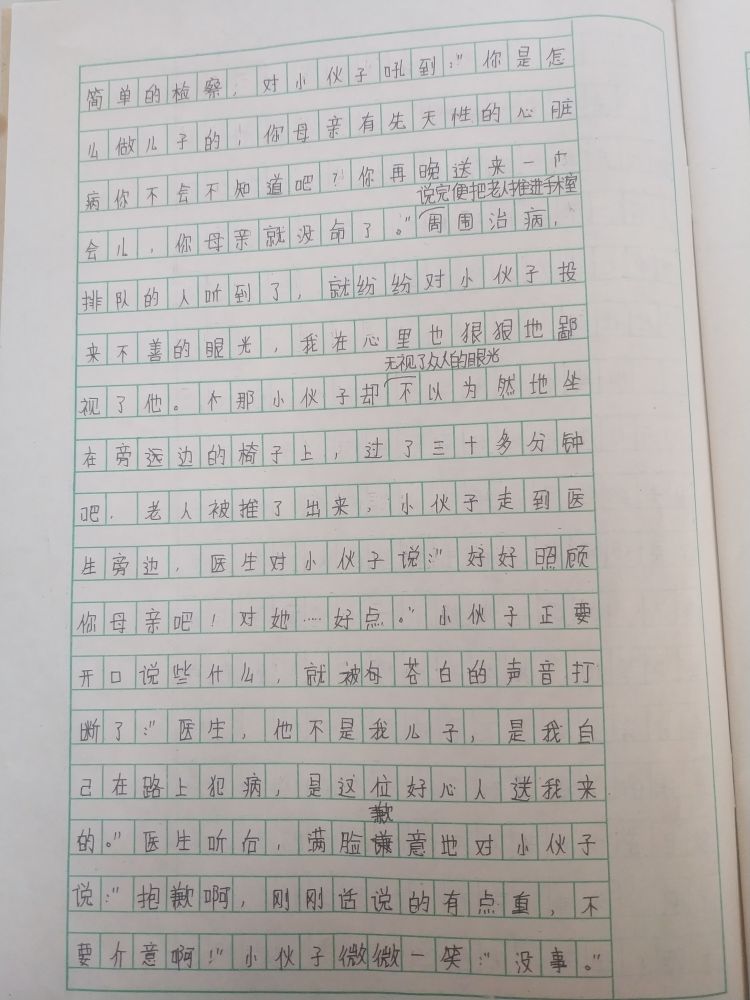 简单的检察，对小伙子吼到：“你是怎
么做儿子的！你母亲有先天性的心脏
病你不会不知道吧？你再晚送来一
说完便把老人推进手术室
会儿，你母亲就没命了。”周围治病，
排队的人听到了，就纷纷对小伙子投
来不善的眼光，我在心里也狠狠地鄙
无视了众人的眼光
视了他。个那小伙子却不以为然地坐
在旁远边的椅子上，过了三十多分钟
吧．老人被推了出来，小伙子走到医
生旁边，医生对小伙子说：“好好照顾
你母亲吧！对她……好点。”小伙子正要
开口说些什么，就被句苍白的声音打
断了：“医生，他不是我儿子，是我自
己在路上犯病，是这位好心人送我来
歉
的。”医生听后，满脸意地对小伙子
说：“抱歉啊，刚刚话说的有点重，不
要介意啊！”小伙子微微一笑：“没事。”